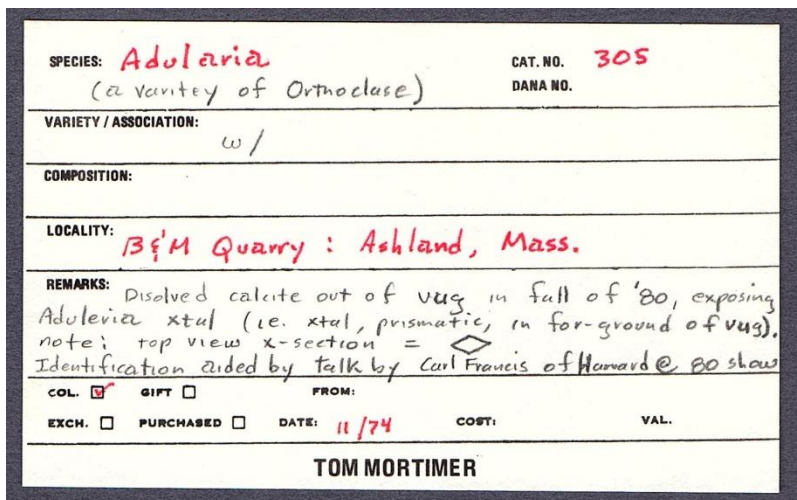 SPECIES: Adularia CAT. NO. 305
(a varitey of Orthoclase) DANA NO.
VARIETY / ASSOCIATION:
w/
COMPOSITION:
LOCALITY: B&M Quarry : Ashland, Mass.
REMARKS: Disolved calcite out of vug in fall of '80, exposing
Adularia xtal (ie. xtal, prismatic, in for-ground of vug).
note: top view x-section = ◇
Identification aided by talk by Carl Francis of Harvard @ 80 show
COL. ☑ GIFT ☐ FROM:
EXCH. ☐ PURCHASED ☐ DATE: 11/74 COST: VAL.
TOM MORTIMER